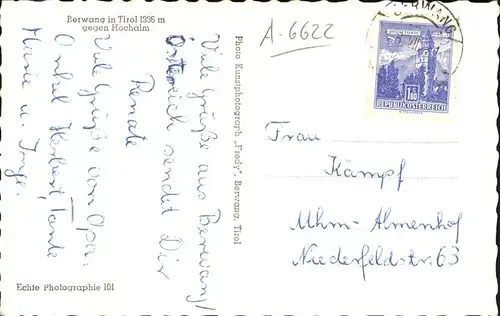 Berwang in Tirol 1336 m
gegen Hochalm
A-6622
BERWANG
1.80
REPUBLIK ÖSTERREICH
Viele Grüße aus Berwang/
Österreich sendet Dir
Renate
Viele Grüße von Opa,
Onkel Herbert, Tante
Marie u. Inge.
Photo Kunstphotograph „Fredy", Berwang, Tirol
Frau
Kämpf
Ulm-Almenhof
Niederfeldstr. 63
Echte Photographie 101